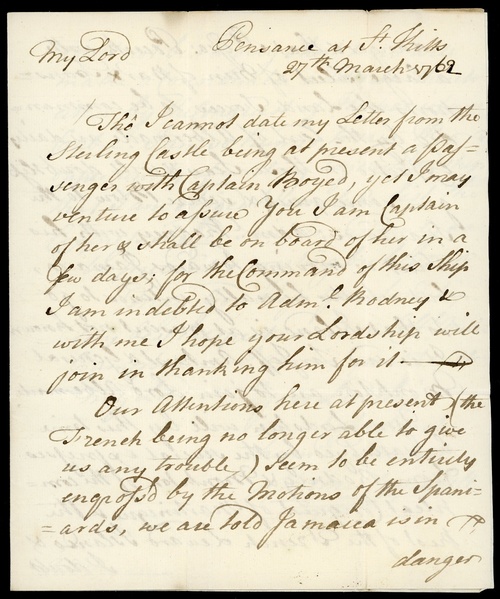 My Lord Pensance at St. Kitts
27th March 1762
Tho' I cannot date my Letter from the
Sterling Castle, being at present a pas-
senger with Captain Boyed, yet I may
venture to assure You I am Captain
of her & shall be on board of her in a
few days; for the Command of this Ship
I am indebted to Adml. Rodney &
with me I hope your Lordship will
join in thanking him for it
Our Attentions here at present (the
French being no longer able to give
us any trouble) seem to be entirely
engross'd by the Motions of the Spani-
=ards, we are told Jamaica is in
danger